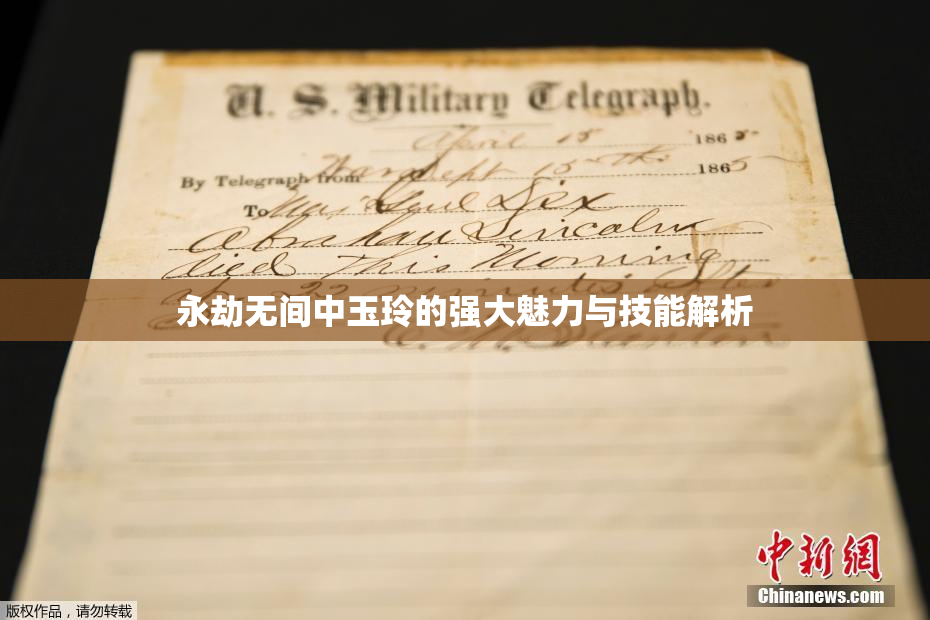 U. S. Military Telegraph.
April 15 1865
By Telegraph from War Dept 15th 1865
To Maj Genl Dix
Abraham Lincoln
died This Morning
at 22 minutes after
永劫无间中玉玲的强大魅力与技能解析
E. M. Stanton
中新網
Chinanews.com
版权作品,请勿转载